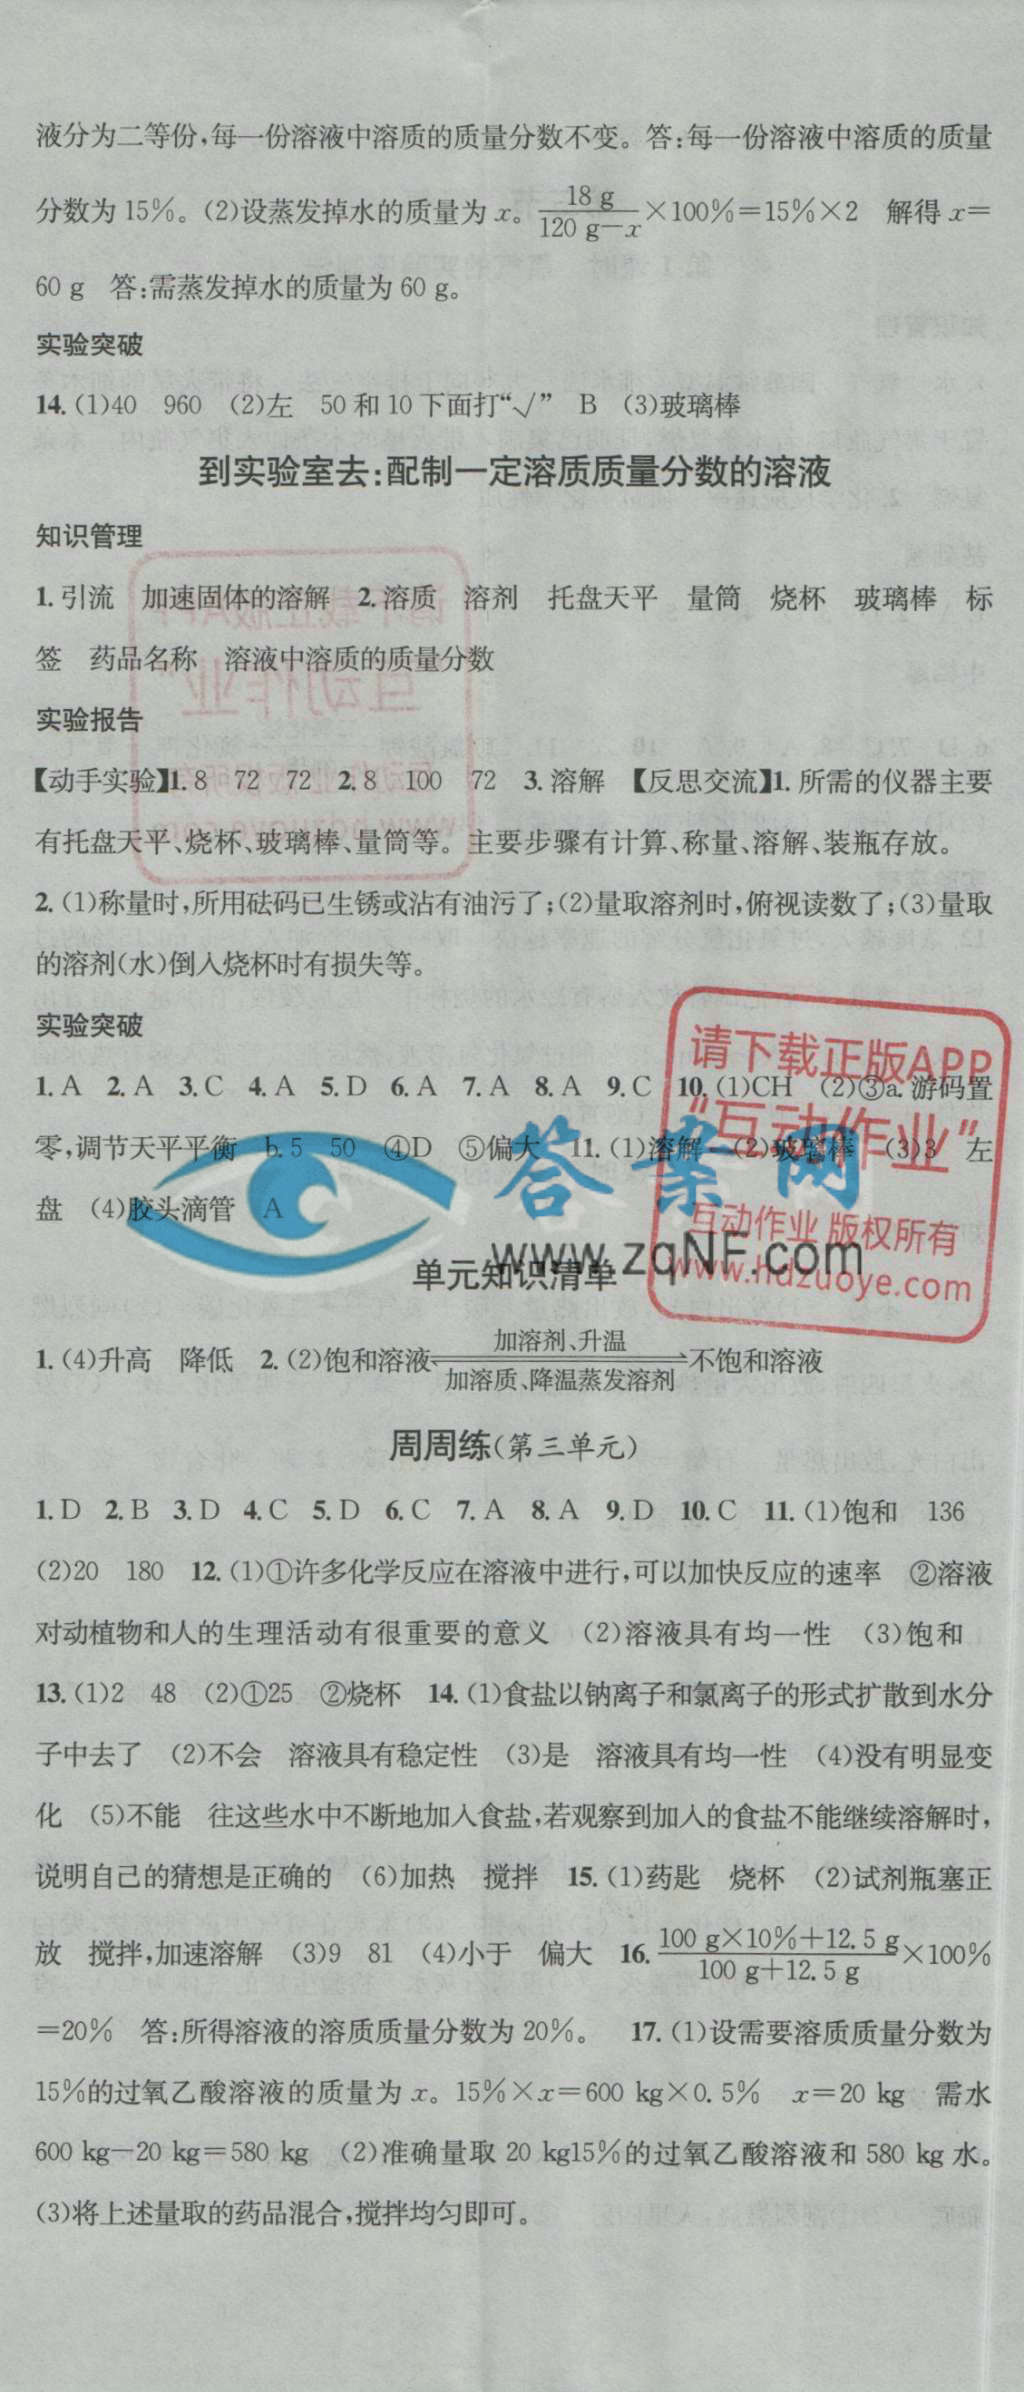 液分为二等份,每一份溶液中溶质的质量分数不变。答:每一份溶液中溶质的质量
分数为15%。(2)设蒸发掉水的质量为x。18 g/(120 g-x)×100%=15%×2 解得x=
60 g 答:需蒸发掉水的质量为60 g。
实验突破
14.(1)40 960 (2)左 50和10下面打“√” B (3)玻璃棒
到实验室去:配制一定溶质质量分数的溶液
知识管理
1.引流 加速固体的溶解 2.溶质 溶剂 托盘天平 量筒 烧杯 玻璃棒 标
签 药品名称 溶液中溶质的质量分数
实验报告
【动手实验】1.8 72 72 2.8 100 72 3.溶解 【反思交流】1.所需的仪器主要
有托盘天平、烧杯、玻璃棒、量筒等。主要步骤有计算、称量、溶解、装瓶存放。
2.(1)称量时,所用砝码已生锈或沾有油污了;(2)量取溶剂时,俯视读数了;(3)量取
的溶剂(水)倒入烧杯时有损失等。
实验突破
1.A 2.A 3.C 4.A 5.D 6.A 7.A 8.A 9.C 10.(1)CH (2)③a.游码置
零,调节天平平衡 b.5 50 ④D ⑤偏大 11.(1)溶解 (2)玻璃棒 (3)3 左
盘 (4)胶头滴管 A
单元知识清单
1.(4)升高 降低 2.(2)饱和溶液 加溶剂、升温 不饱和溶液
加溶质、降温蒸发溶剂
周周练(第三单元)
1.D 2.B 3.D 4.C 5.D 6.C 7.A 8.A 9.D 10.C 11.(1)饱和 136
(2)20 180 12.(1)①许多化学反应在溶液中进行,可以加快反应的速率 ②溶液
对动植物和人的生理活动有很重要的意义 (2)溶液具有均一性 (3)饱和
13.(1)2 48 (2)①25 ②烧杯 14.(1)食盐以钠离子和氯离子的形式扩散到水分
子中去了 (2)不会 溶液具有稳定性 (3)是 溶液具有均一性 (4)没有明显变
化 (5)不能 往这些水中不断地加入食盐,若观察到加入的食盐不能继续溶解时,
说明自己的猜想是正确的 (6)加热 搅拌 15.(1)药匙 烧杯 (2)试剂瓶塞正
放 搅拌,加速溶解 (3)9 81 (4)小于 偏大 16.(100 g×10%+12.5 g)/(100 g+12.5 g)×100%
=20% 答:所得溶液的溶质质量分数为20%。 17.(1)设需要溶质质量分数为
15%的过氧乙酸溶液的质量为x。15%×x=600 kg×0.5% x=20 kg 需水
600 kg-20 kg=580 kg (2)准确量取20 kg15%的过氧乙酸溶液和580 kg水。
(3)将上述量取的药品混合,搅拌均匀即可。
请下载正版APP
“互动作业”
互动作业 版权所有
www.hdzuoye.com
答案网
www.zqNF.com